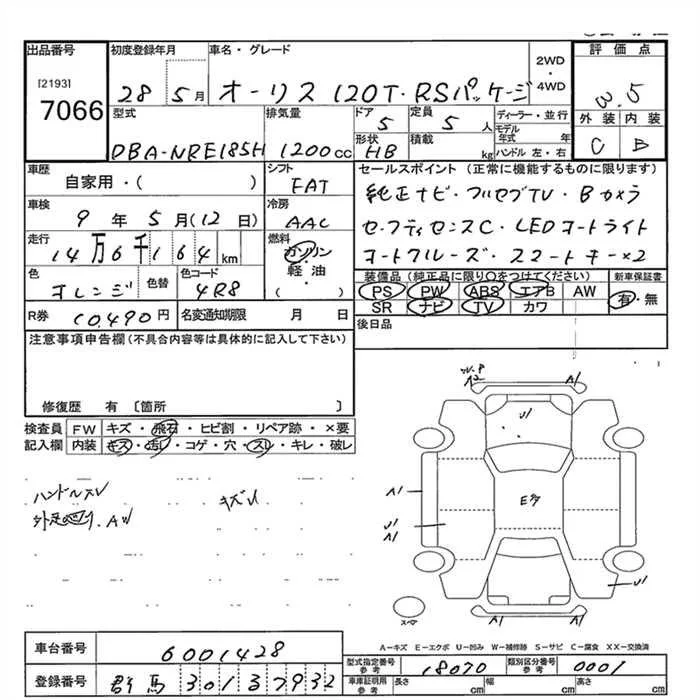 出品番号 初度登録年月 車名・グレード 2WD・4WD 評価点
[2193]
7066
28 5月 オーリス 120T・RSパッケージ 3.5
型式 排気量 ドア 定員 ディーラー・並行 外装 内装
DBA-NRE185H 1200cc 5 5人 モデル年式 年 C B
形状 積載 ハンドル 左・右
HB kg
車歴 シフト セールスポイント(正常に機能するものに限ります)
自家用・( ) FAT 純正ナビ・フルセグTV・Bカメラ
車検 冷房 セーフティセンスC・LEDオートライト
9年5月(12日) AAC オートクルーズ・スマートキー×2
走行 燃料
14万6千164km ガソリン・軽油・( )
色 色替 色コード 装備品(純正品に限り○をつけてください) 新車保証書
オレンジ 4R8 PS PW ABS エアB AW 有・無
SR ナビ TV カワ
R券 10,490円 名変通知期限 月 日 後日品
注意事項申告欄(不具合内容等は具体的に記入して下さい)
修復歴 有 〔箇所 〕
検査員 FW キズ・飛石・ヒビ割・リペア跡・×要
記入欄 内装 キズ・汚レ・コゲ・穴・スレ・キレ・破レ
ハンドルスレ キズU
A2 A1
U1
A1 Eク
U1
A1 U1
スペア
A1 A1
A-キズ E-エクボ U-凹み W-補修跡 S-サビ C-腐食 XX-交換済
車台番号 6001428
型式指定番号 参考 18070 類別区分番号 参考 0001
登録番号 群馬 301 ほ 7932
車庫証明用 参考 長さ cm 幅 cm 高さ cm